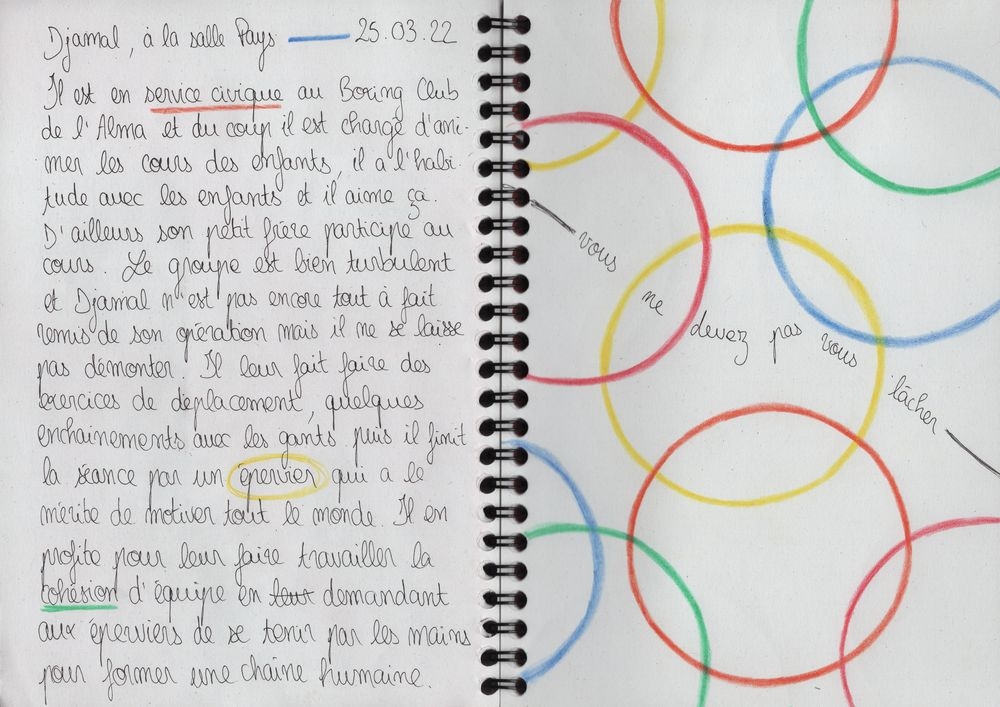 Djamal, à la salle Pays — 25.03.22
Il est en service civique au Boxing Club
de l'Alma et du coup il est chargé d'ani-
mer les cours des enfants, il a l'habi-
tude avec les enfants et il aime ça.
D'ailleurs son petit frère participe au
cours. Le groupe est bien turbulent
et Djamal n'est pas encore tout à fait
remis de son opération mais il ne se laisse
pas démonter. Il leur fait faire des
exercices de déplacement, quelques
enchainements avec les gants puis il finit
la séance par un épervier qui a le
mérite de motiver tout le monde. Il en
profite pour leur faire travailler la
cohésion d'équipe en leur demandant
aux éperviers de se tenir par les mains
pour former une chaîne humaine.
vous ne devez pas vous lâcher